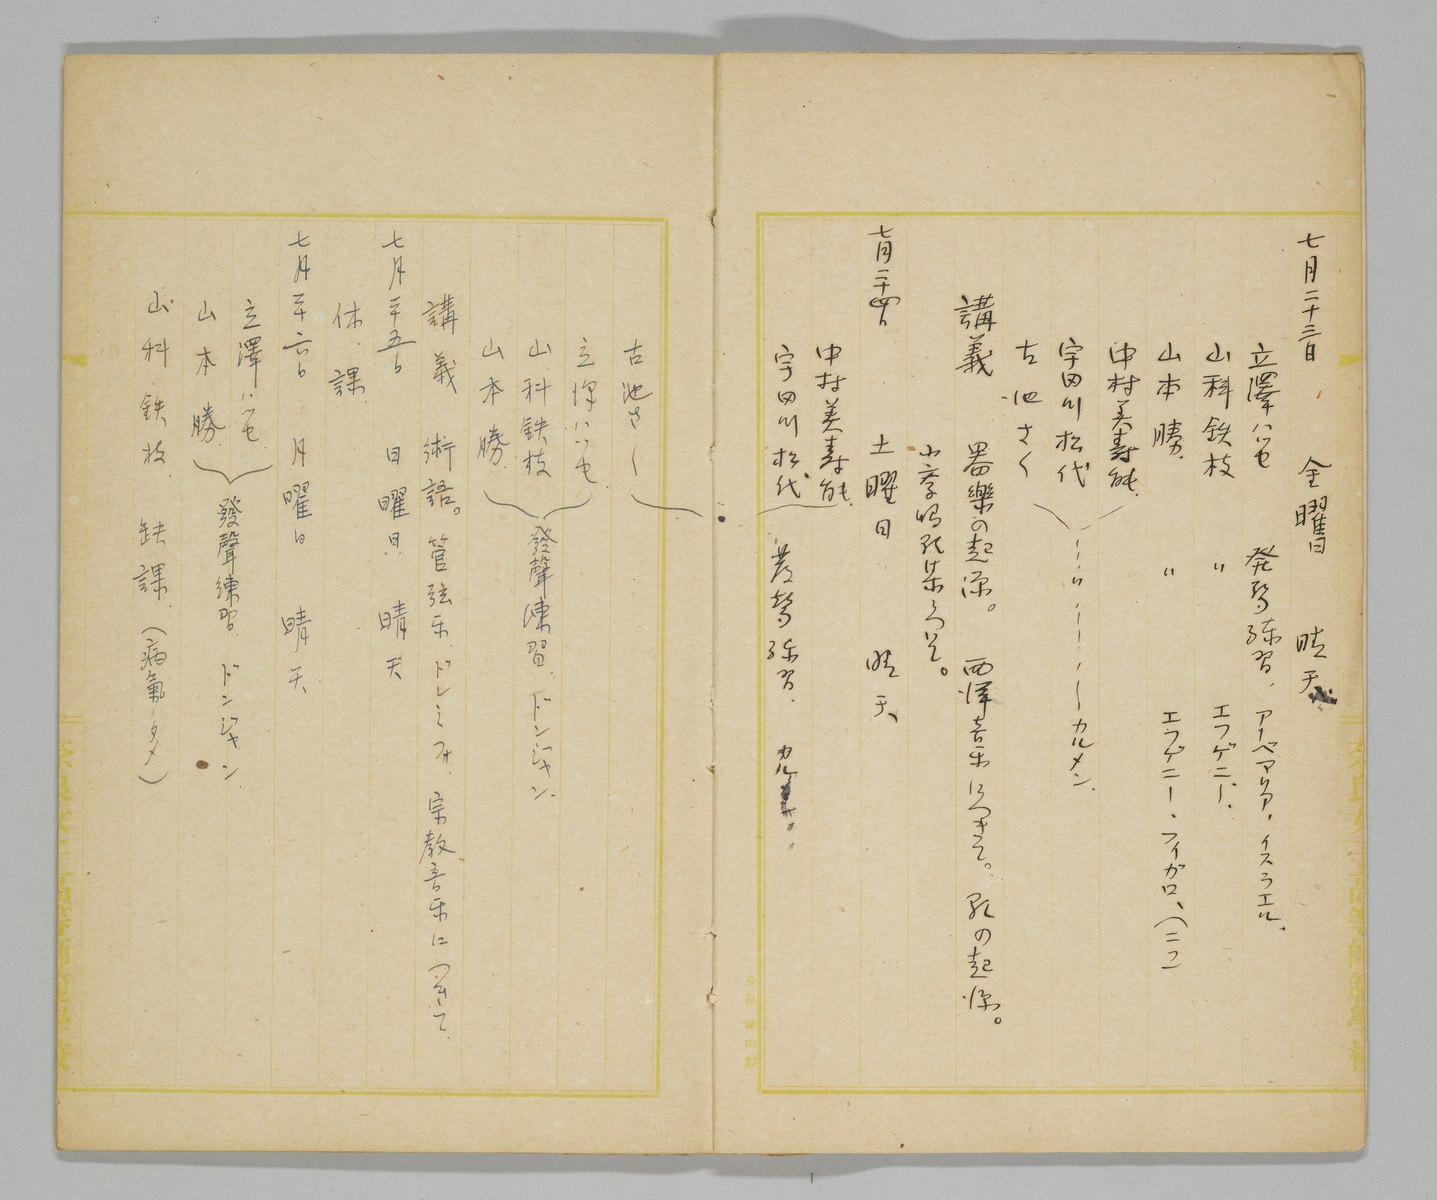 七月二十三日 金曜日 晴天
立澤ハツセ 発声練習、アーベマリア、イスラエル、
山科鉄枝 〃 エフゲニー、
山本勝 〃 エフゲニー、フィガロ、(二フ)
中村美壽能
宇田川松代 カルメン、
古池さく
講義 器樂の起源。西洋音楽につきて。歌の起源。
七月二十四日 土曜日 晴天
中村美壽能
宇田川松代 発声練習、カル
古池さく
立澤ハツセ
山科鉄枝 發聲練習、ドンジャン、
山本勝
講義 術語。管弦楽、ドレミファ、宗教音楽につきて
七月二十五日 日曜日 晴天
休課
七月二十六日 月曜日 晴天
立澤ハツセ
山本勝 發聲練習 ドンジャン
山科鉄枝 缺課、(病氣ノタメ)